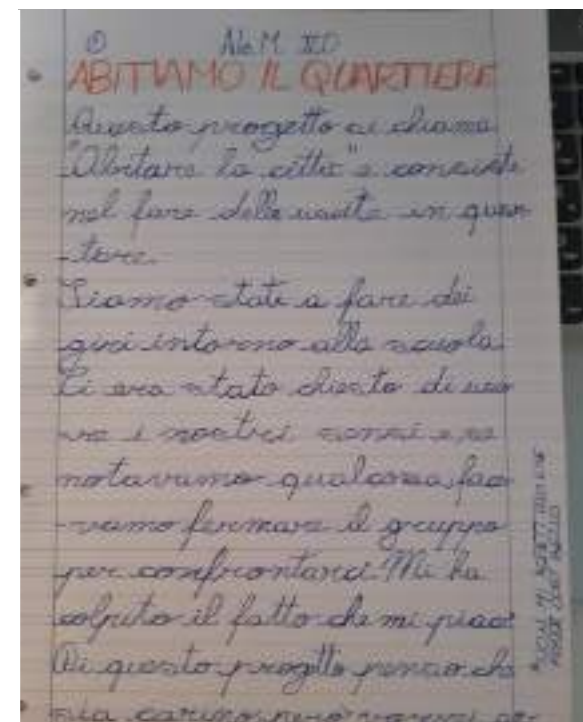 ① Ale M. II D
ABITIAMO IL QUARTIERE
Questo progetto si chiama
"Abitare la città" e consiste
nel fare delle uscite in quar
-tiere.
Siamo stati a fare dei
giri intorno alla scuola.
Ci era stato chiesto di usa
re i nostri sensi e se
notavamo qualcosa, face
-vamo fermare il gruppo
per confrontarci. Mi ha
colpito il fatto che mi piace
Di questo progetto penso che
sia carino però